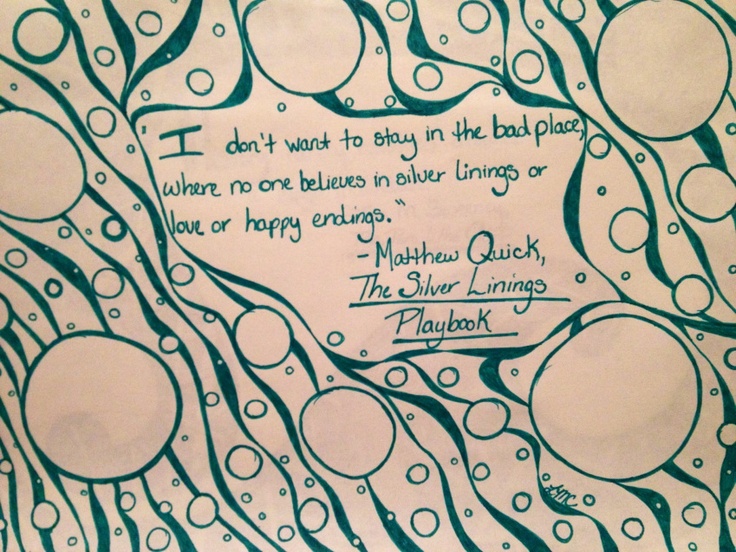 "I don't want to stay in the bad place,
where no one believes in silver linings or
love or happy endings."
- Matthew Quick,
The Silver Linings
Playbook